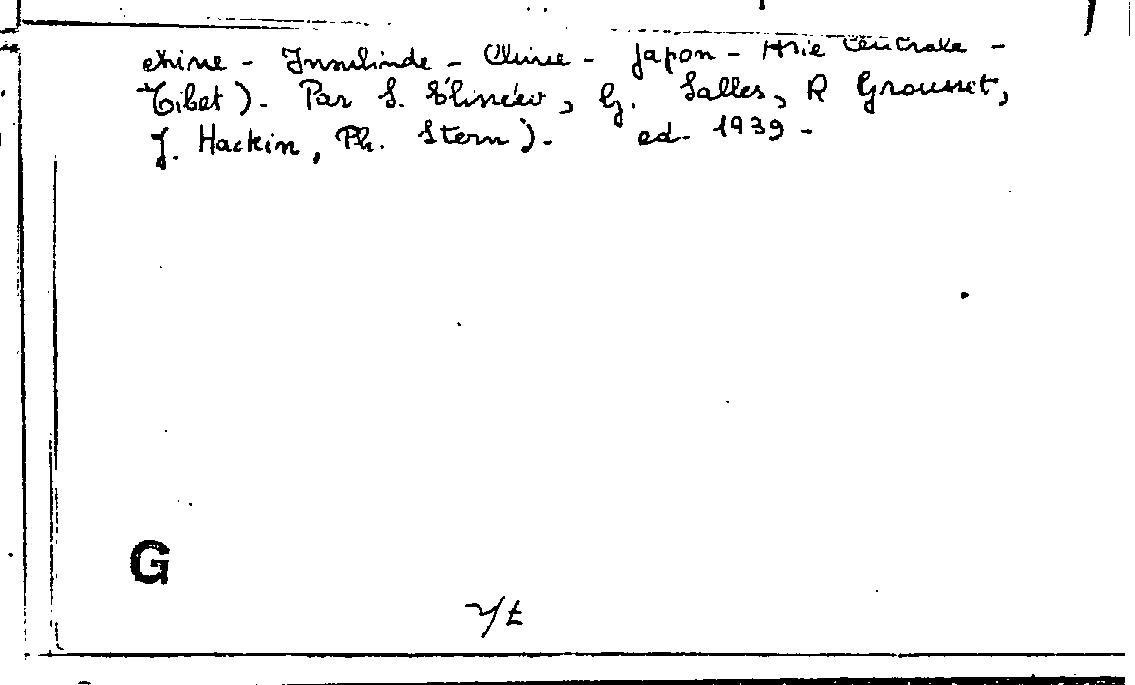 chine - Insulinde - Chine - Japon - Asie Centrale -
Tibet). Par S. Elisséev, G. Salles, R Grousset,
J. Hackin, Ph. Stern). ed. 1939 -
G